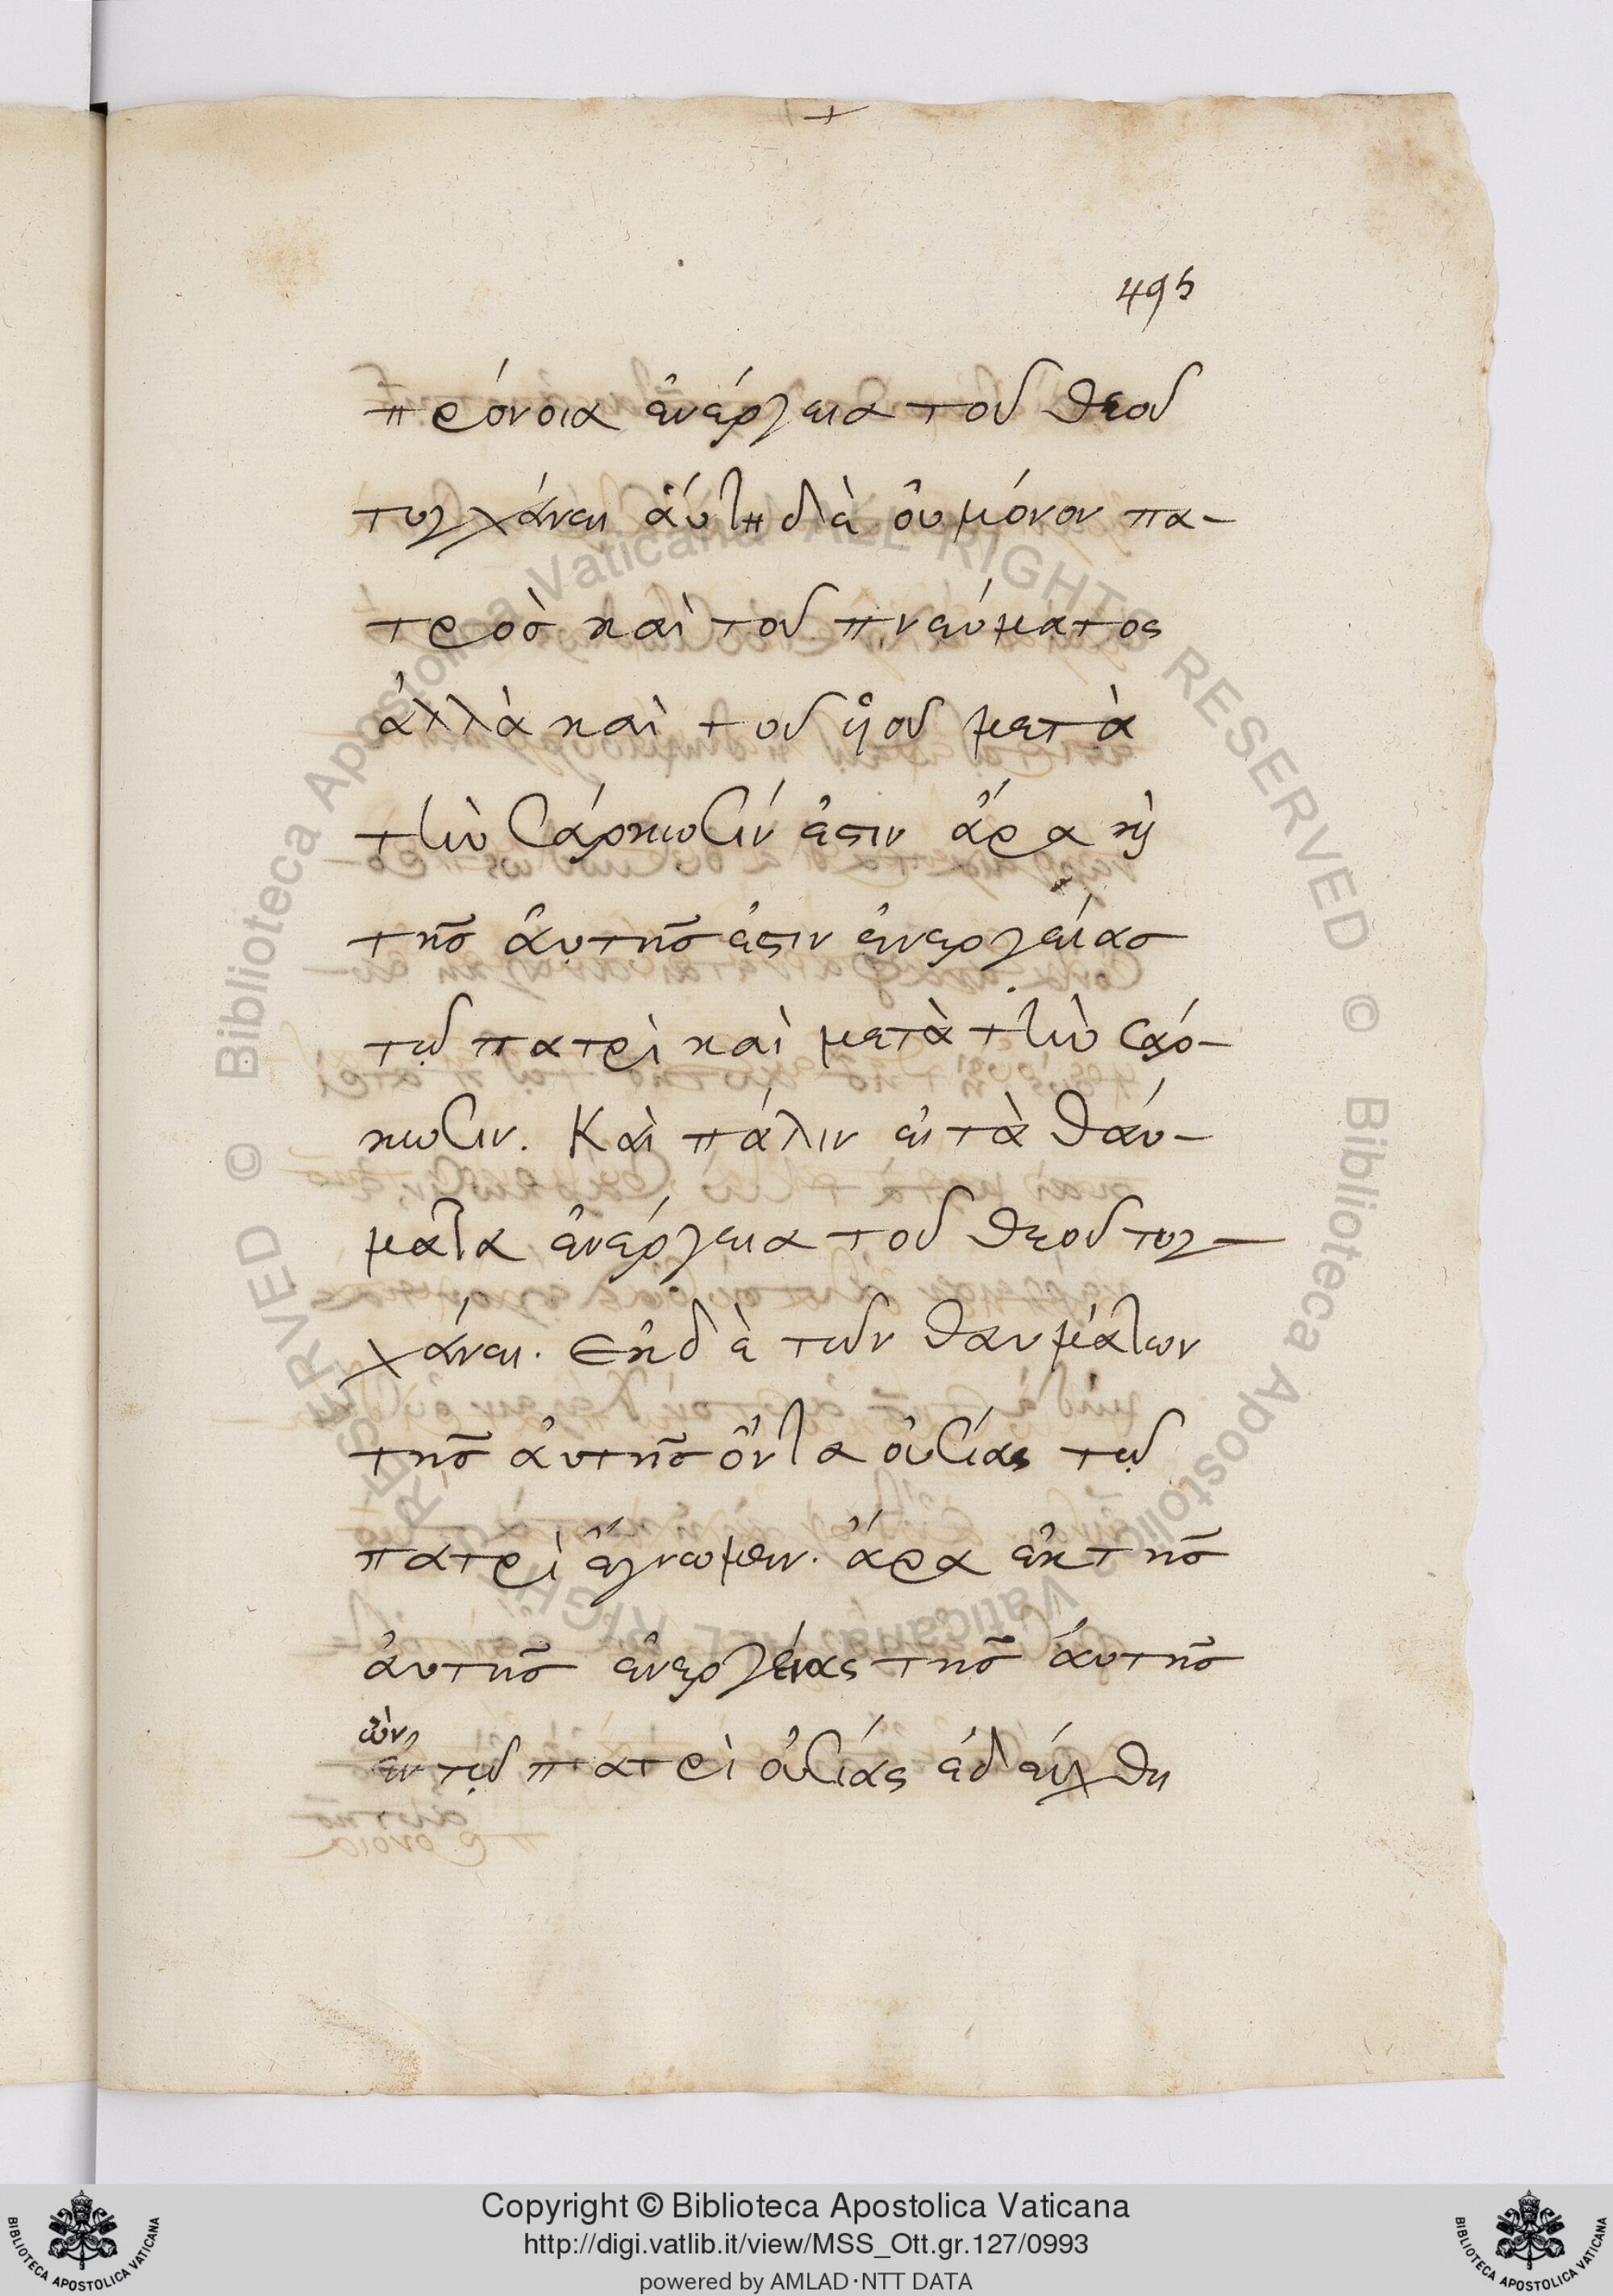 495
πρόνοια ἐνέργεια τοῦ θεοῦ
τυγχάνει ἀύτη δὲ ὀυ μόνον πα-
τρὸσ καὶ τοῦ πνεύματος
ἀλλὰ καὶ τοῦ ὑιοῦ μετὰ
τὴν σάρκωσίν ἐστιν ἄρα κὴ
τῆσ ἀυτῆσ ἐστιν ἐνεργείασ
τῷ πατρὶ καὶ μετὰ τὴν σάρ-
κωσιν. Καὶ πάλιν ἐι τὰ θάυ-
ματα ἐνέργεια τοῦ θεοῦ τυγ-
χάνει. ἐκ δὲ τῶν θαυμάτων
τῆσ ἀυτῆσ ὄντα ὀυσίας τῷ
πατρὶ ἔγνωμεν. ἄρα ἐκ τῆσ
ἀυτῆσ ἐνεργείας τῆσ ἀυτῆσ
ὢν
ἐν τῷ πατρὶ ὀυσίας ἐδείχθη
© Biblioteca Apostolica Vaticana ALL RIGHTS RESERVED © Biblioteca Apostolica Vaticana ALL RIGHTS RESERVED
Copyright © Biblioteca Apostolica Vaticana
http://digi.vatlib.it/view/MSS_Ott.gr.127/0993
powered by AMLAD·NTT DATA
BIBLIOTECA APOSTOLICA VATICANA
BIBLIOTECA APOSTOLICA VATICANA